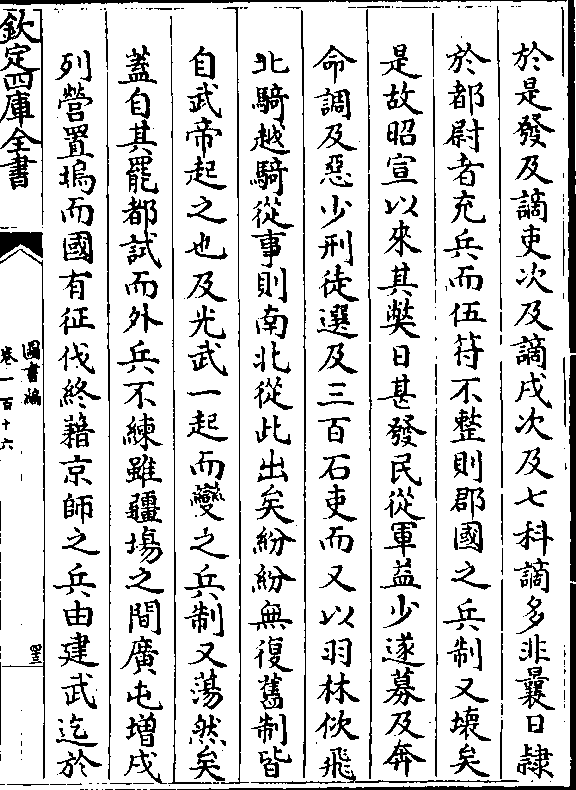 於是發及謫吏次及謫戍次及七科謫多非曩日隸
於都尉者充兵而伍符不整則郡國之兵制又壞矣
是故昭宣以來其獘日甚發民從軍益少遂募及奔
命調及惡少刑徒選及三百石吏而又以羽林佽飛
北騎越騎從事則南北從此出矣紛紛無復舊制皆
自武帝起之也及光武一起而變之兵制又蕩然矣
蓋自其罷都試而外兵不練雖疆場之間廣屯增戍
列營置塢而國有征伐終藉京師之兵由建武迄於
欽定四庫全書
圖書編
卷一百十六